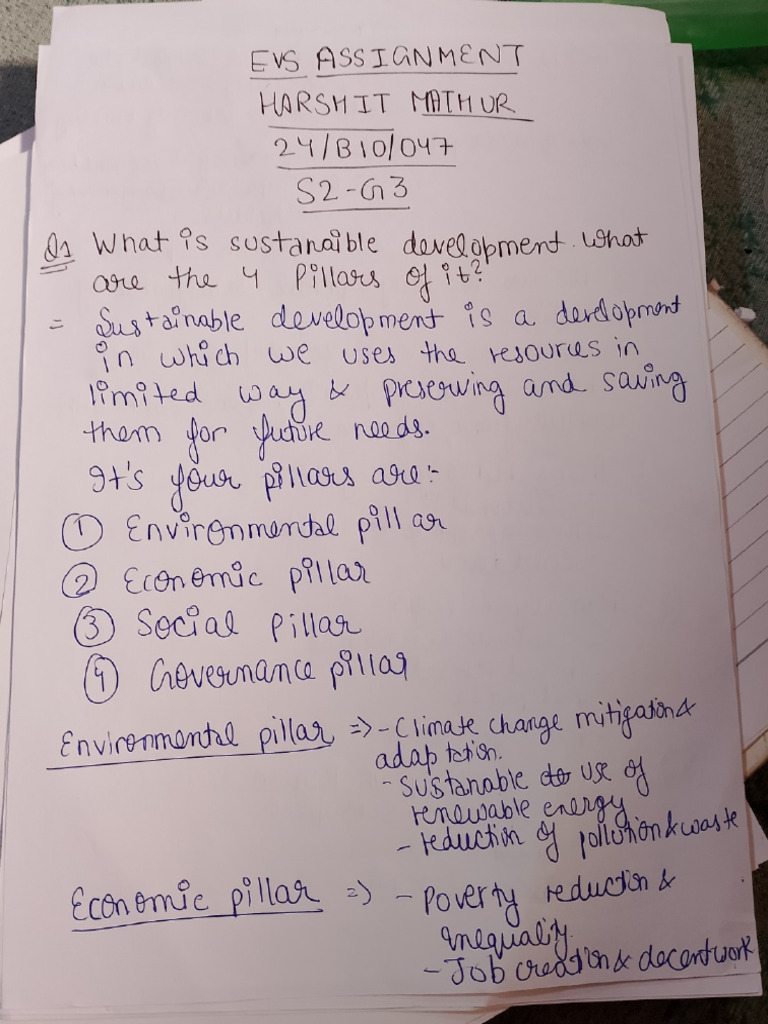 EVS ASSIGNMENT
HARSHIT MATHUR
24/B10/047
S2-G3
Q1 What is sustanaible development. What
are the 4 Pillars of it?
= Sustainable development is a development
in which we uses the resources in
limited way & preserving and saving
them for future needs.
It's four pillars are:-
① Environmental pillar
② Economic pillar
③ Social Pillar
④ Governance pillar
Environmental pillar => - Climate change mitigation &
adaptation.
- Sustanable use of
renewable energy
- reduction of pollution & waste
Economic pillar => - Poverty reduction &
inequality.
- Job creation & decent work